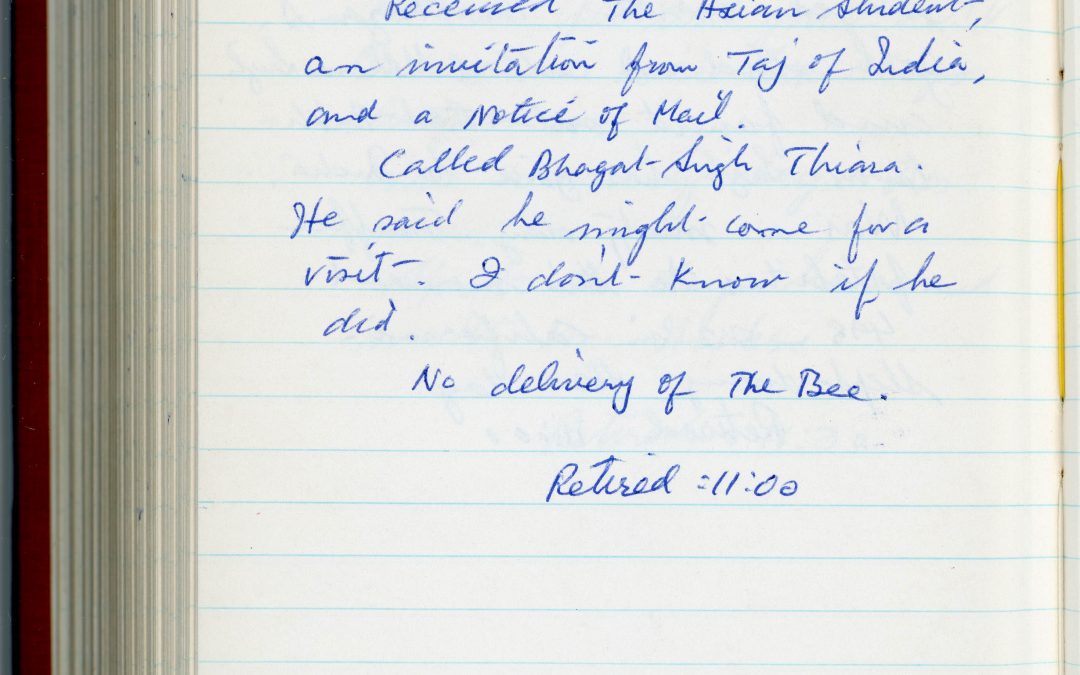 Received The Asian Student,
an invitation from Taj of India,
and a Notice of Mail.
Called Bhagat Singh Thiara.
He said he might come for a
visit. I don't know if he
did.
No delivery of The Bee.
Retired :11:00